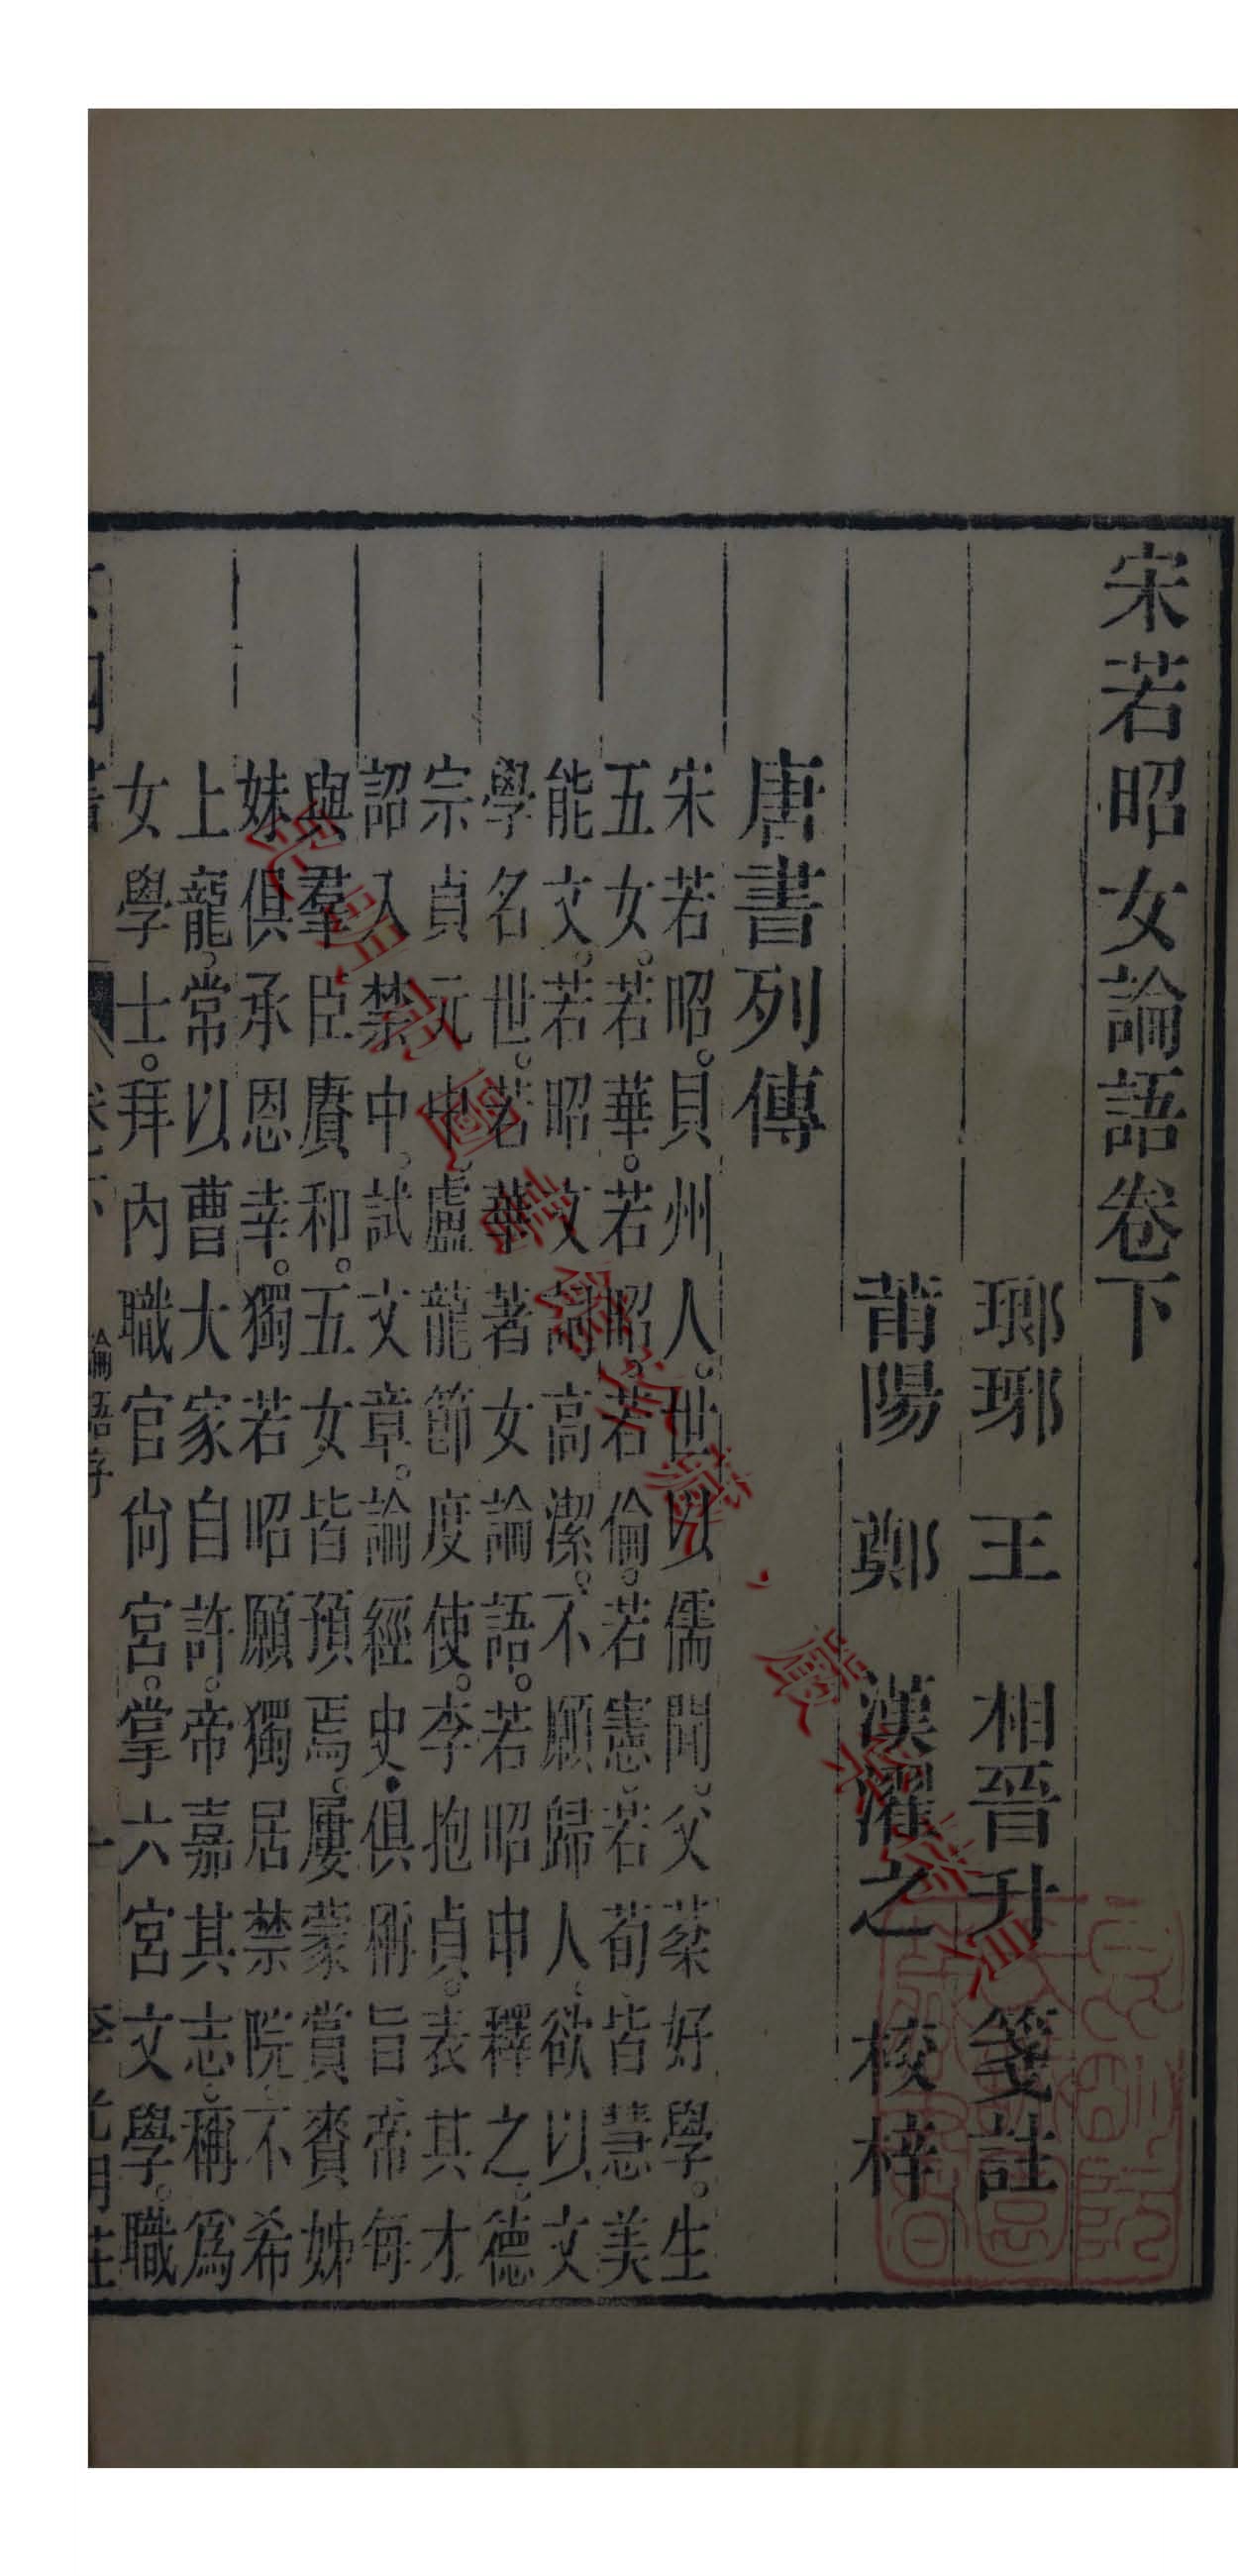 宋若昭女論語卷下
瑯琊　王　相晉升　箋註
莆陽　鄭　漢濯之　校梓
唐書列傳
宋若昭。貝州人。世以儒聞。父棻好學。生
五女。若華。若昭。若倫。若憲。若荀皆慧美
能文。若昭文詞高潔。不願歸人。欲以文
學名世。若華著女論語。若昭申釋之。德
宗貞元中。盧龍節度使。李抱貞。表其才
詔入禁中。試文章。論經史。俱稱旨帝每
與羣臣賡和。五女皆預焉。屢蒙賞賚姊
妹俱承恩幸。獨若昭願獨居禁院。不希
上寵。常以曹大家自許。帝嘉其志。稱爲
女學士。拜內職官尚宮。掌六宮文學。職
卷下　論語序